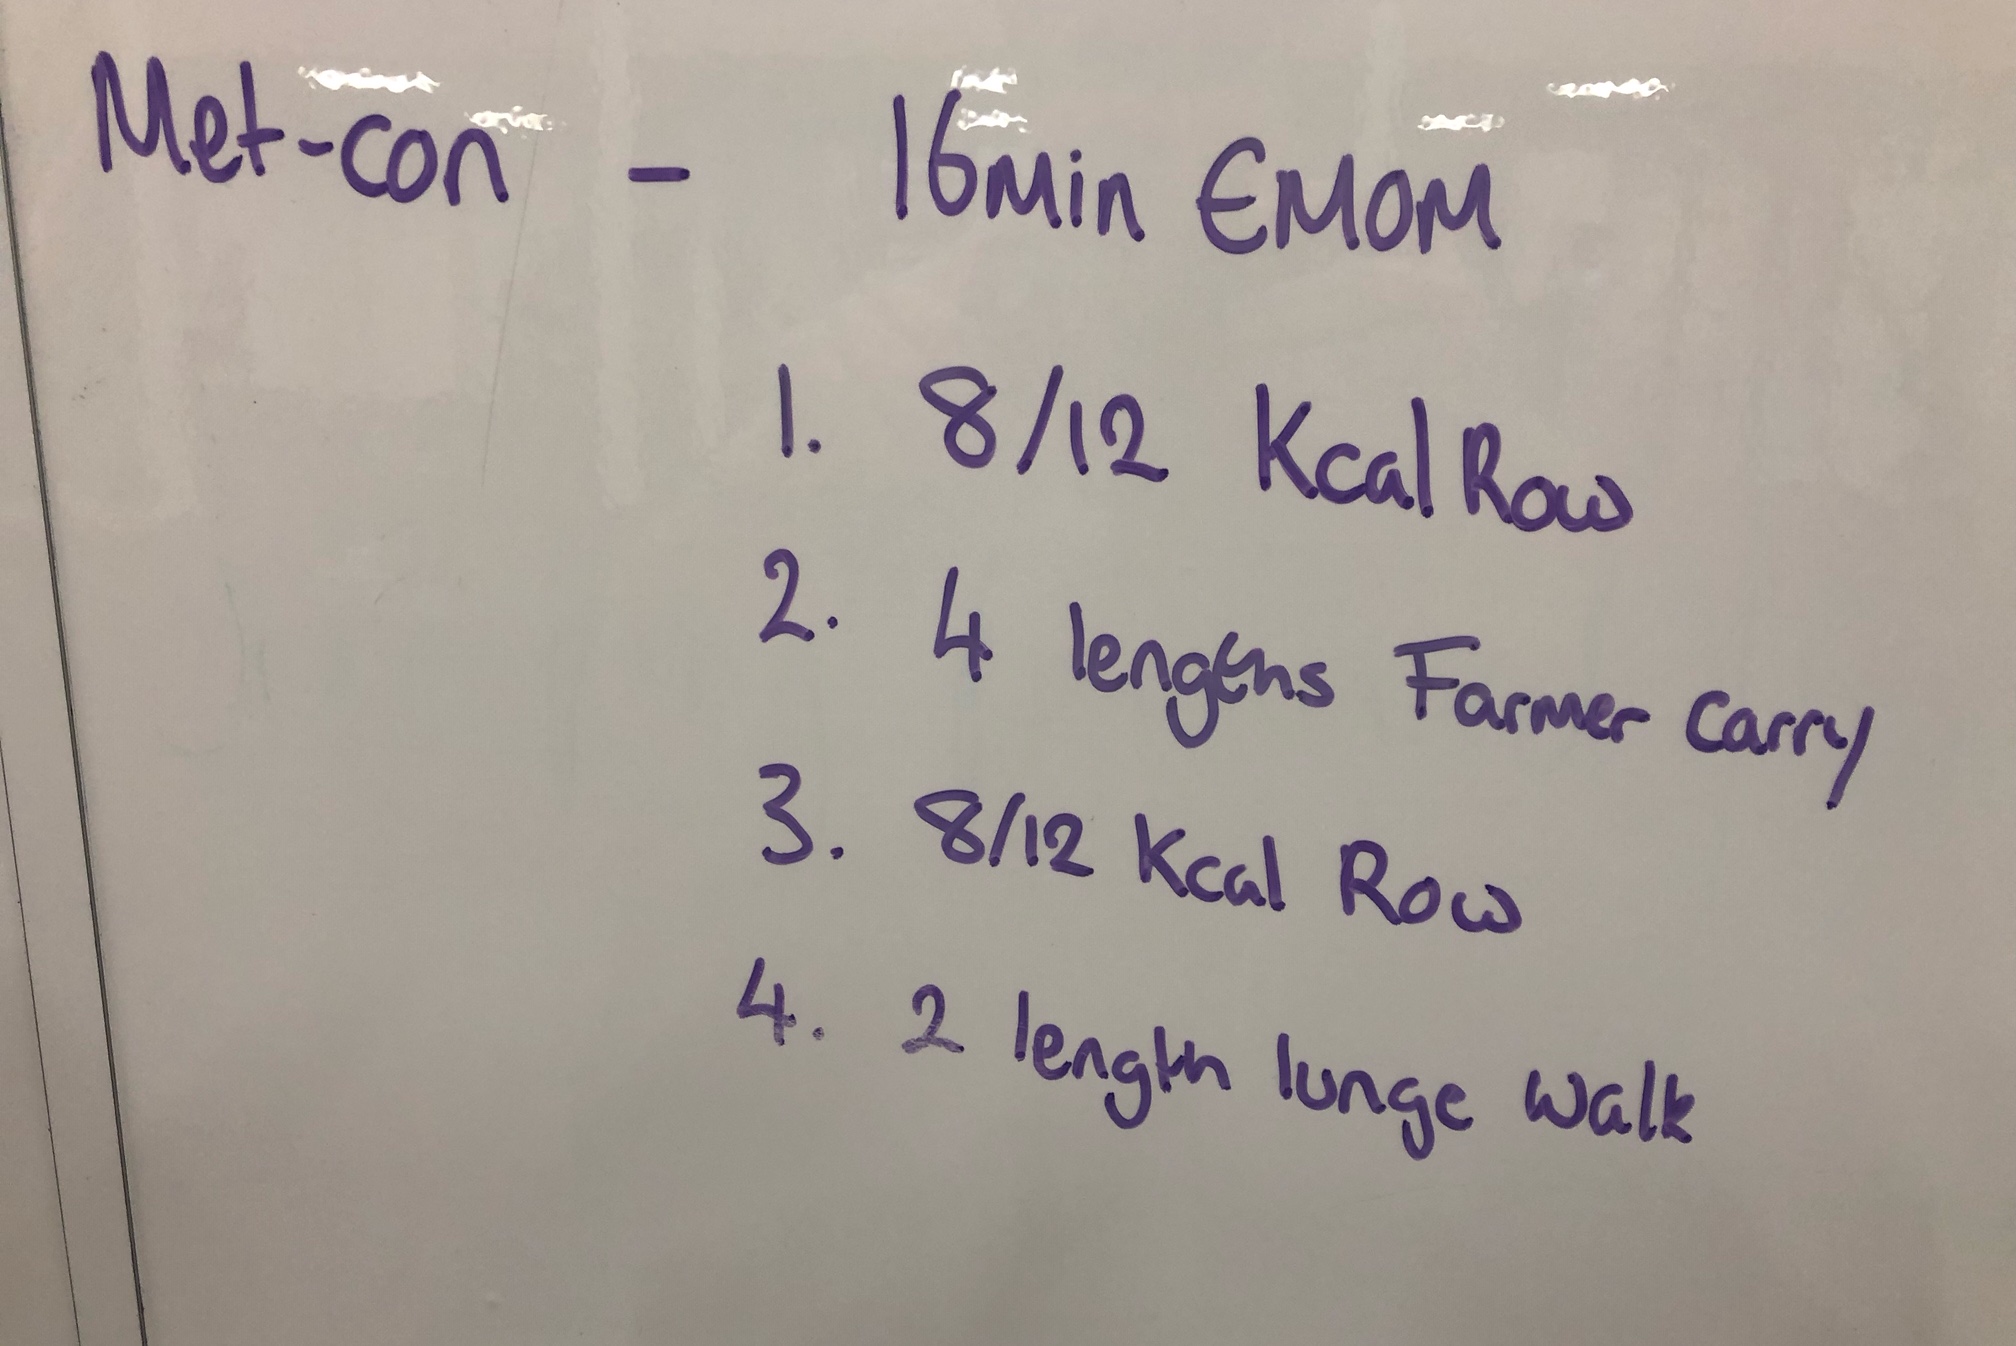 Met-con - 16Min EMOM
1. 8/12 Kcal Row
2. 4 lengths Farmer Carry
3. 8/12 Kcal Row
4. 2 length lunge walk